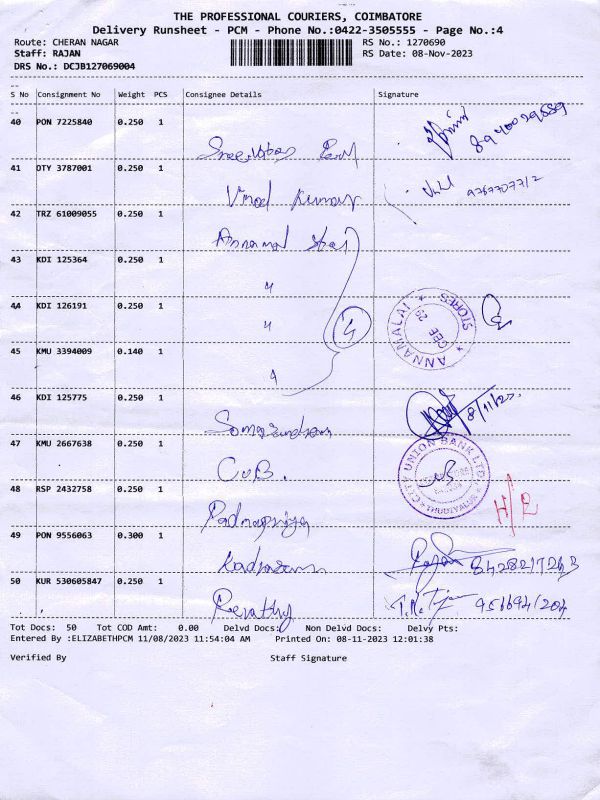 THE PROFESSIONAL COURIERS, COIMBATORE
Delivery Runsheet - PCM - Phone No.:0422-3505555 - Page No.:4
Route: CHERAN NAGAR RS No.: 1270690
Staff: RAJAN RS Date: 08-Nov-2023
DRS No.: DCJB127069004
S No Consignment No Weight PCS Consignee Details Signature
40 PON 7225840 0.250 1
8940029689
41 OTY 3787001 0.250 1
Vinod Kumar
42 TRZ 61009055 0.250 1
43 KDI 125364 0.250 1
"
44 KDI 126191 0.250 1
" 4
ANNAMALAI STORES
45 KMU 3394009 0.140 1
"
46 KDI 125775 0.250 1
8/11/23
47 KMU 2667638 0.250 1
C.U.B.
CITY UNION BANK LTD.
THUDIYALUR
48 RSP 2432758 0.250 1
Padmapriya
49 PON 9556063 0.300 1
Rajan
50 KUR 530605847 0.250 1
Revathy
Tot Docs: 50 Tot COD Amt: 0.00 Delvd Docs: Non Delvd Docs: Delvy Pts:
Entered By :ELIZABETHPCM 11/08/2023 11:54:04 AM Printed On: 08-11-2023 12:01:38
Verified By Staff Signature